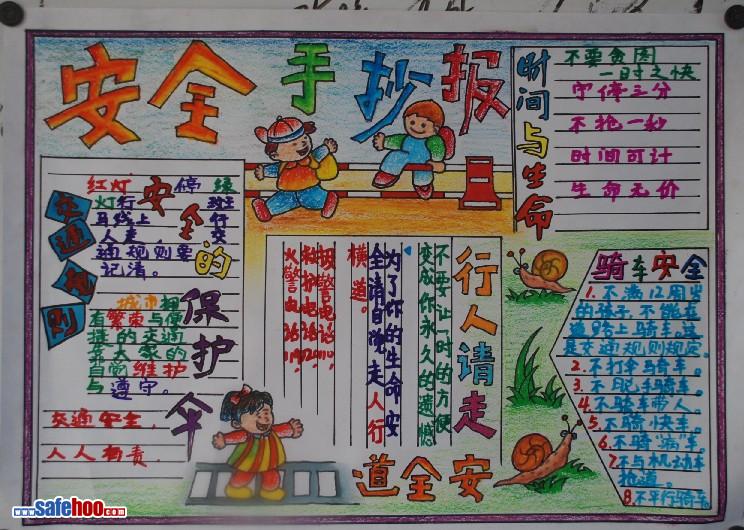 安全手抄报
时间与生命
不要贪图
一时之快
宁停三分
不抢一秒
时间可计
生命无价
交通规则
安全的保护伞
红灯停绿
灯行班
马线上行
人走,交
通规则要
记清。
城市拥
有繁荣与便
捷的交通
靠大家的
自觉维护
与遵守。
交通安全,
人人有责。
行人请走
安全道
不要让一时的方便
变成你永久的遗憾
为了你的生命安
全请自觉走人行
横道。
报警电话:110
救护电话:120
火警电话:119
骑车安全
1.不满12周岁
的孩子,不能在
道路上骑车。这
是交通规则规定。
2.不打伞骑车。
3.不脱手骑车。
4.不骑车带人。
5.不骑快车。
6.不骑“病”车。
7.不与机动车
抢道。
8.不平行骑车。
www.safehoo.com